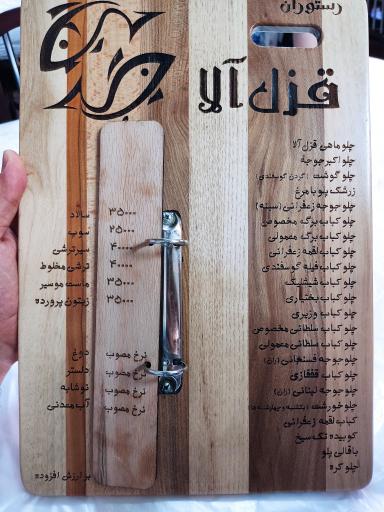 رستوران
قزل آلا
چلو ماهی قزل آلا
چلو اکبر جوجه
چلو گوشت (گردن گوسفندی)
زرشک پلو با مرغ
چلو جوجه زعفرانی (سینه)
چلو کباب برگ مخصوص
چلو کباب برگ معمولی
چلو کباب لقمه زعفرانی
چلو کباب فیله گوسفندی
چلو کباب شیشلیگ
چلو کباب بختیاری
چلو کباب وزیری
چلو کباب سلطانی مخصوص
چلو کباب سلطانی معمولی
چلو جوجه فسنجانی (ران)
چلو کباب قفقازی
چلو جوجه لبنانی (ران)
چلو خورشت (یکشنبه و چهارشنبه ها)
کباب لقمه زعفرانی
کوبیده تک سیخ
باقالی پلو
چلو کره
سالاد ۳۵۰۰۰
سوپ ۲۵۰۰۰
سیر ترشی ۴۰۰۰۰
ترشی مخلوط ۴۰۰۰۰
ماست موسیر ۳۵۰۰۰
زیتون پرورده ۳۵۰۰۰
دوغ نرخ مصوب
دلستر نرخ مصوب
نوشابه نرخ مصوب
آب معدنی نرخ مصوب
بر ارزش افزوده